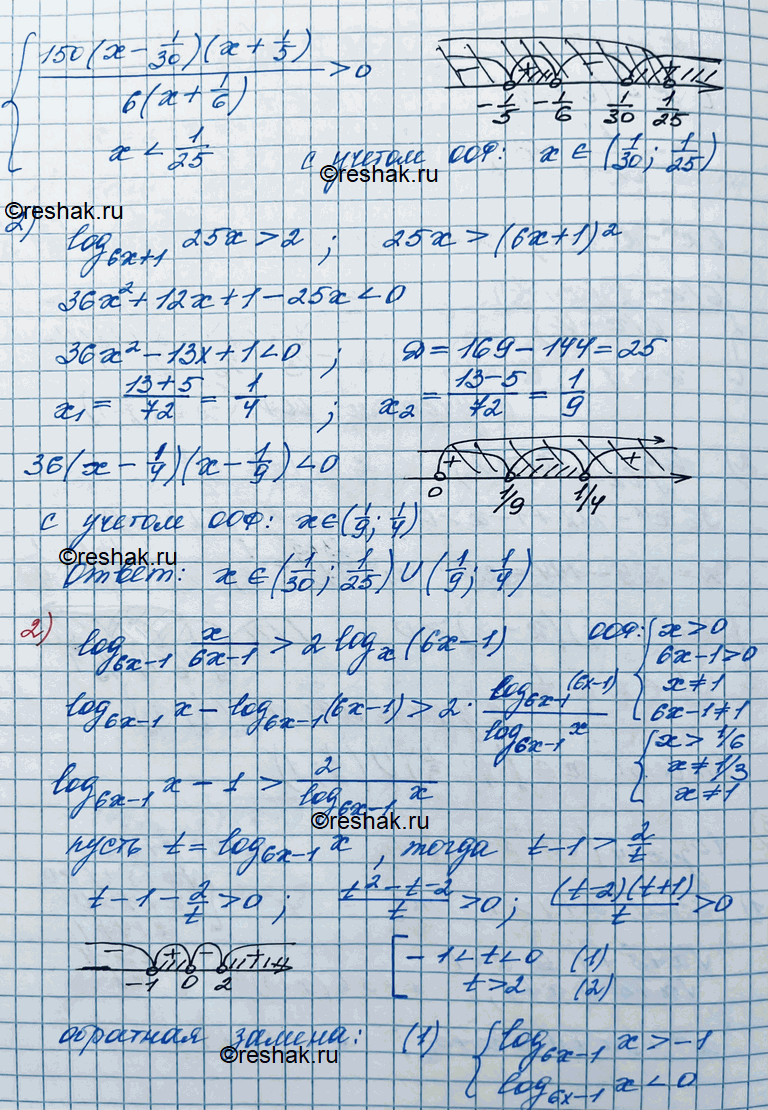 { 150(x - 1/30)(x + 1/5) / 6(x + 1/6) > 0
- + - + -1/5 -1/6 1/30 1/25
x < 1/25
с учетом ООФ: x ∈ (1/30; 1/25)
©reshak.ru
©reshak.ru
2) log_{6x+1} 25x > 2 ; 25x > (6x+1)^2
36x^2 + 12x + 1 - 25x < 0
36x^2 - 13x + 1 < 0 ; D = 169 - 144 = 25
x_1 = (13+5)/72 = 1/4 ; x_2 = (13-5)/72 = 1/9
36(x - 1/4)(x - 1/9) < 0
+ - + 0 1/9 1/4
с учетом ООФ: x ∈ (1/9; 1/4)
©reshak.ru
Ответ: x ∈ (1/30; 1/25) ∪ (1/9; 1/4)
2) log_{6x-1} x/(6x-1) > 2 log_x (6x-1)
ООФ: { x > 0
6x-1 > 0
x ≠ 1
6x-1 ≠ 1
log_{6x-1} x - log_{6x-1} (6x-1) > 2 · log_{6x-1} (6x-1) / log_{6x-1} x
{ x > 1/6
x ≠ 1/3
x ≠ 1
log_{6x-1} x - 1 > 2 / log_{6x-1} x
©reshak.ru
пусть t = log_{6x-1} x , тогда t - 1 > 2/t
t - 1 - 2/t > 0 ; (t^2 - t - 2)/t > 0 ; (t-2)(t+1)/t > 0
- + - + -1 0 2
[ -1 < t < 0 (1)
t > 2 (2)
обратная замена: (1) { log_{6x-1} x > -1
log_{6x-1} x < 0
©reshak.ru